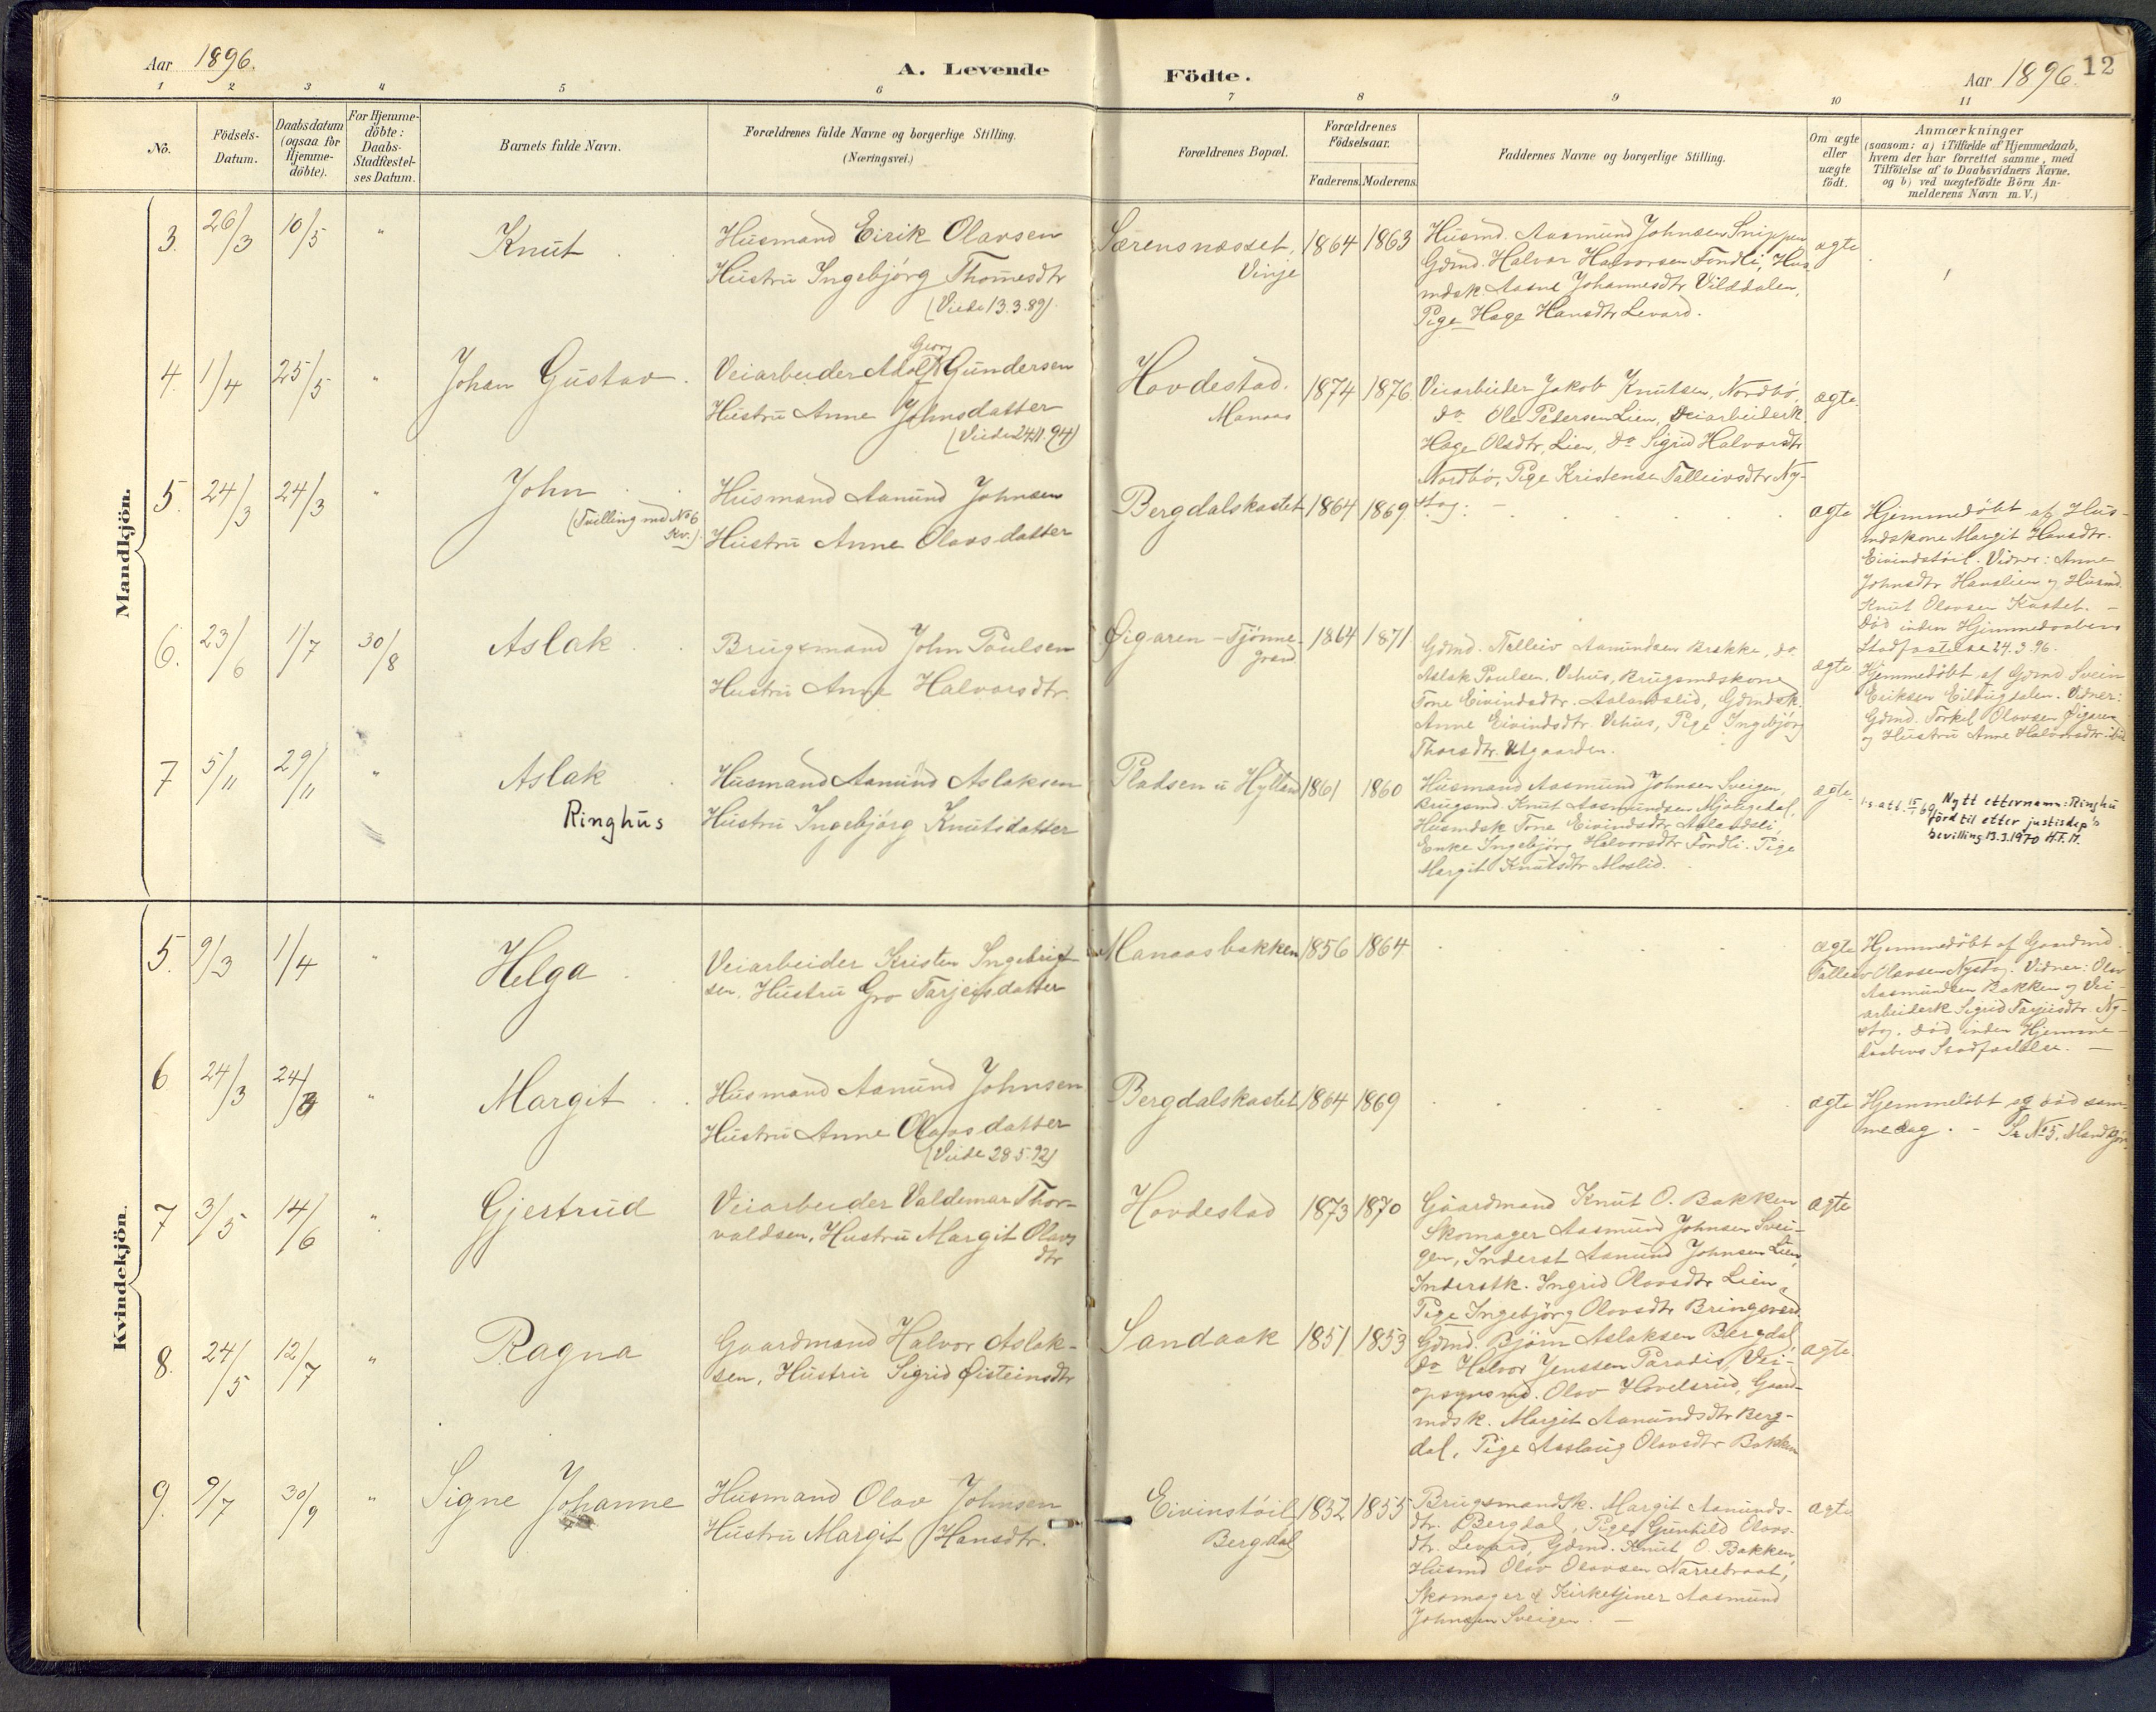 Aar 1896.
A. Levende Födte.
Aar 1896.
12
1 2 3 4 5 6 7 8 9 10 11
No.
Födsels-
Datum.
Daabsdatum
(ogsaa for
Hjemme-
döbte).
For Hjemme-
döbte:
Daabs-
Stadfæstel-
ses Datum.
Barnets fulde Navn.
Forældrenes fulde Navne og borgerlige Stilling.
(Næringsvei.)
Forældrenes Bopæl.
Forældrenes
Födselsaar.
Faderens. Moderens.
Faddernes Navne og borgerlige Stilling.
Om ægte
eller
uægte
födt.
Anmærkninger
(saasom: a) i Tilfælde af Hjemmedaab,
hvem der har forrettet samme, med
Tilföielse af to Daabsvidners Navne,
og b) ved uægtefödte Börn An-
melderens Navn m. V.)
Mandkjön.
3. 26/3 10/5 "
Knut
Husmand Eirik Olavsen
Hustru Ingebjörg Thomesdtr
(Viede 13.3.89).
Særensnæsset,
Vinje
1864 1863
Husmd. Aasmund Johnsen Snippen
Gdmd. Halvor Halvorsen Fondli, Hus-
mdsk. Aasne Johannesdtr Vilddalen,
Pige Hage Hansdtr Levard.
ægte
4. 1/4 25/5 "
Johan Gustav.
Georg
Veiarbeider Adolf Gundersen
Hustru Anne Johnsdatter
(Viede 24.11.94)
Hovdestad.
Manaas
1874 1876.
Veiarbeider Jakob Knutsen, Nordbö,
do Ole Pedersen Lien, Veiarbeiderk.
Hage Olsdtr, Lien, do Sigrid Halvorsdtr
Nordbö, Pige Kristense Talleivsdtr Ny-
stog. —
ægte.
5. 24/3 24/3 "
John
(Tvilling med No 6
Kv.)
Husmand Aamund Johnsen
Hustru Anne Olavsdatter
Bergdalskastet
1864 1869
ægte
Hjemmedöbt af Hus-
mdskone Margit Hansdtr.
Eivindstöil. Vidner: Anne
Johnsdtr Hanslien og Husmd.
Knut Olavsen Kastet. —
Död inden Hjemmedaabens
Stadfæstelse 24.3.96.
6. 23/6 1/7 30/8
Aslak
Brugsmand John Poulsen
Hustru Anne Halvorsdtr.
Øigaren - Tjönne-
grend
1864 1871
Gdmd. Talleiv Aamundsen Brække, do
Aslak Poulsen, Vehus, Brugsmdskone
Tone Eivindsdtr. Aalandslid, Gdmdsk.
Anne Eivindsdtr. Vehus, Pige Ingebjörg
Thorsdtr. Utgaarden.
ægte
Hjemmedöbt af Gdmd Svein
Eriksen Eilefsdalen. Vidner:
Gdmd. Torkel Olavsen Øigaren
og Hustru Anne Halvorsdtr. ibid
7 5/11 29/11 "
Aslak
Ringhus
Husmand Aamund Aslaksen
Hustru Ingebjörg Knutsdatter
Pladsen u Hylland
1861 1860
Husmand Aasmund Johnsen Sveigen,
Brugsmd. Knut Aasmundsen Mjaugedal,
Husmdsk Tone Eivindsdtr Aalandsli,
Enke Ingebjörg Halvorsdtr Fondli. Pige
Margit Knutsdtr Moslid.
ægte.
Nytt etternavn: Ringhu
förd til etter justisdep's
bevilling 13.3.1970 H.F.M.
Kvindekjön.
5. 9/3 1/4 "
Helga
Veiarbeider Kristen Ingebrigt-
sen, Hustru Gro Tarjeisdatter
Manaasbakken
1856 1864
ægte
Hjemmedöbt af Gaardmd.
Talleiv Olavsen Nystog. Vidner: Olav
Aasmundsen Bakken og Vei-
arbeiderk Sigrid Tarjeisdtr. Ny-
stog. Död inden Hjemme-
daabens Stadfæstelse. —
6 24/3 24/3 "
Margit
Husmand Aamund Johnsen
Hustru Anne Olavsdatter
(Viede 28.5.92)
Bergdalskastet
1864 1869
ægte
Hjemmedöbt og död sam-
me dag. - Se No 5. Mandkjön.
7 3/5 14/6 "
Gjertrud
Veiarbeider Valdemar Thor-
valdsen, Hustru Margit Olavs
dtr
Hovdestad
1873 1870
Gaardmand Knut O. Bakken
Skomager Aasmund Johnsen Svei-
gen, Inderst Aamund Johnsen Lien,
Inderstk. Ingrid Olavsdtr Lien,
Pige Ingebjörg Olavsdtr Bringsverd
ægte
8. 24/5 12/7 "
Ragna
Gaardmand Halvor Aslak-
sen, Hustru Sigrid Øisteinsdtr
Sandaak
1851 1853
Gdmd. Björn Aslaksen Bergdal,
do Halvor Jenssen Paradis, Vei-
opsynsmd. Olav Hovdelsrud, Gaard-
mdsk. Margit Aamundsdtr Berg-
dal, Pige Aaslaug Olavsdtr Bakken
ægte.
9. 9/7 30/9 "
Signe Johanne
Husmand Olav Johnsen
Hustru Margit Hansdtr.
Eivinstöil,
Bergdal
1852 1855
Brugsmandsk. Margit Aamunds-
dtr. Bergdal, Pige Gunhild Olavs-
dtr. Levard, Gdmd. Knut O. Bakken,
Husmd Olav Olavsen Narrebraat,
Skomager & Kirketjener Aasmund
Johnsen Sveigen. —
ægte